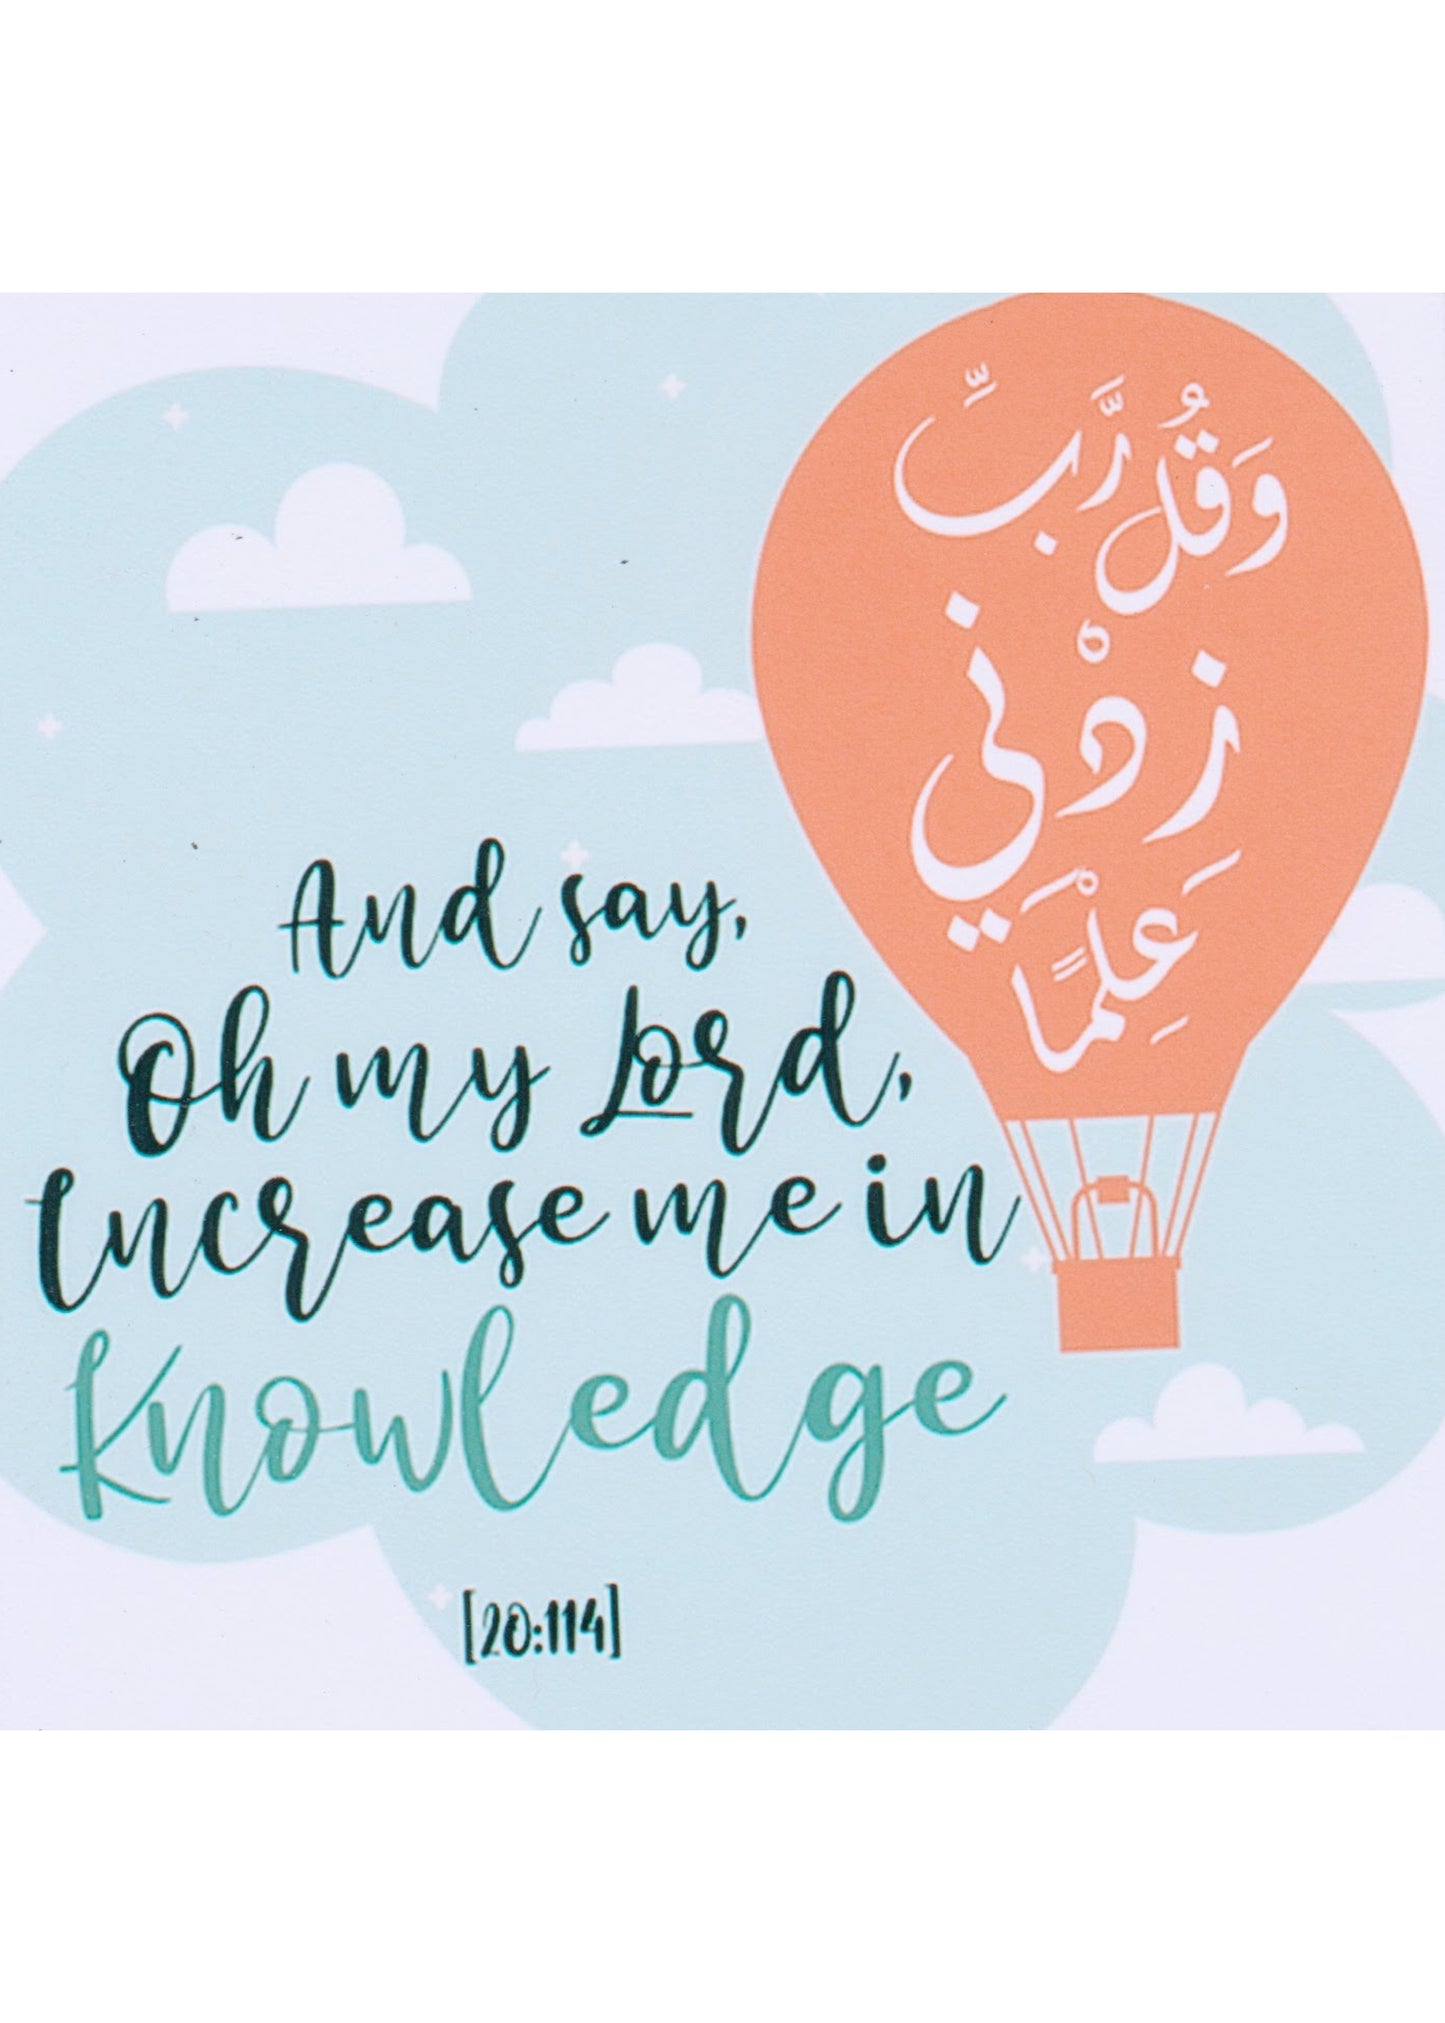 وَقُل رَّبِّ
زِدْنِي
عِلْمًا
And say,
Oh my Lord,
Increase me in
Knowledge
[20:114]